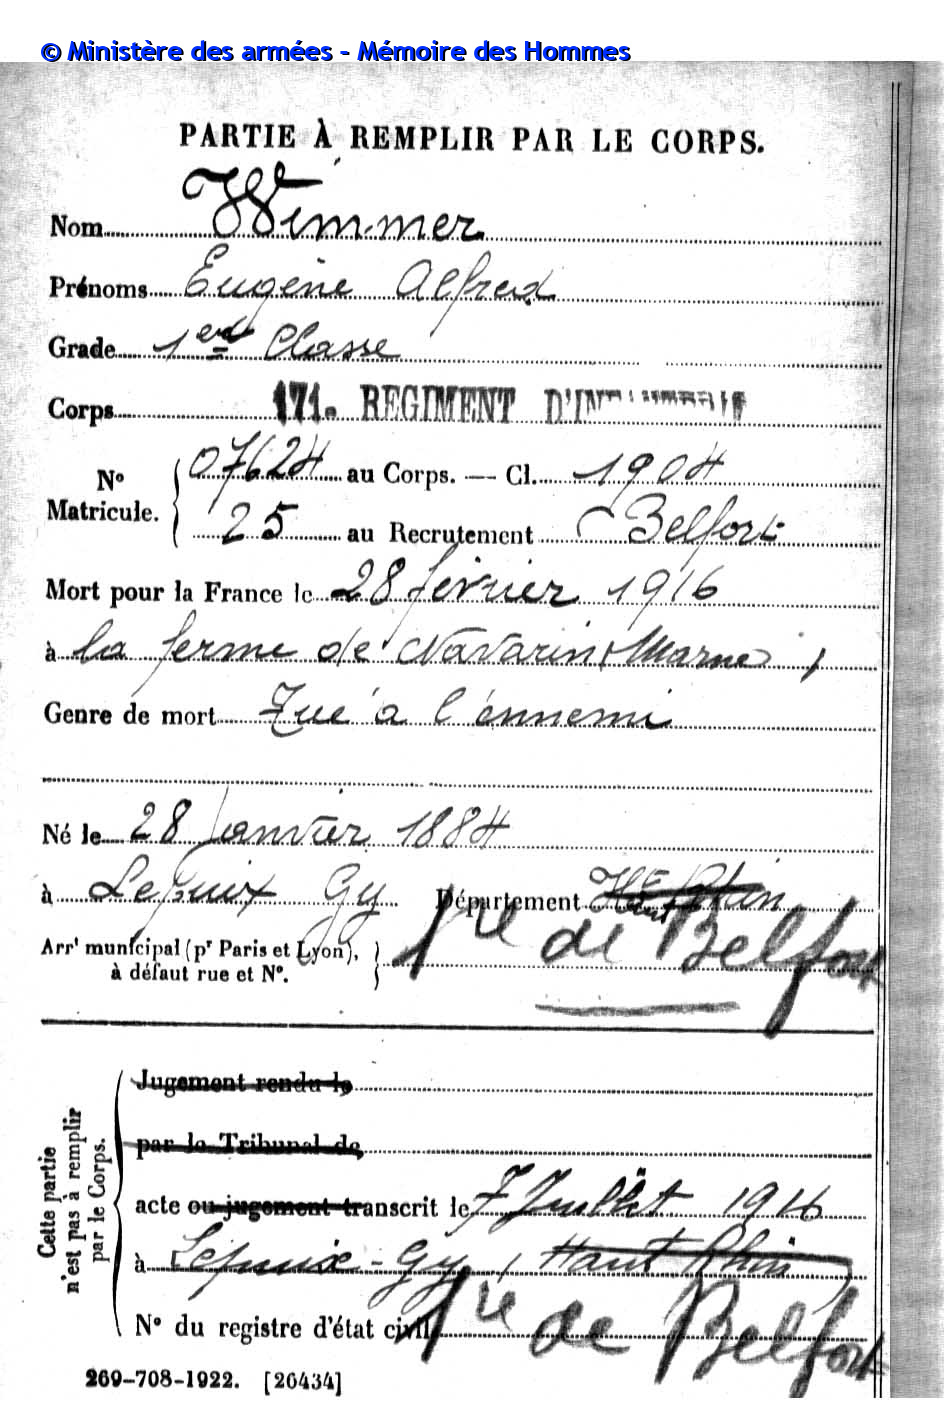 © Ministère des armées - Mémoire des Hommes
PARTIE À REMPLIR PAR LE CORPS.
Nom Wimmer
Prénoms Eugène Alfred
Grade 1ere Classe
Corps 171e REGIMENT D'INFANTERIE
N° Matricule. 07624 au Corps. — Cl. 1904
25 au Recrutement Belfort
Mort pour la France le 28 février 1916
à la ferme de Navarin (Marne)
Genre de mort Tué à l'énnemi
Né le 28 Janvier 1884
à Lepuix Gy Département Ht Rhin
Arrt municipal (pr Paris et Lyon), à défaut rue et N°. Tre de Belfort
Cette partie n'est pas à remplir par le Corps.
Jugement rendu le
par le Tribunal de
acte ou jugement transcrit le 7 Juillet 1916
à Lepuix-Gy (Haut Rhin)
N° du registre d'état civil Tre de Belfort
269-708-1922. [26434]